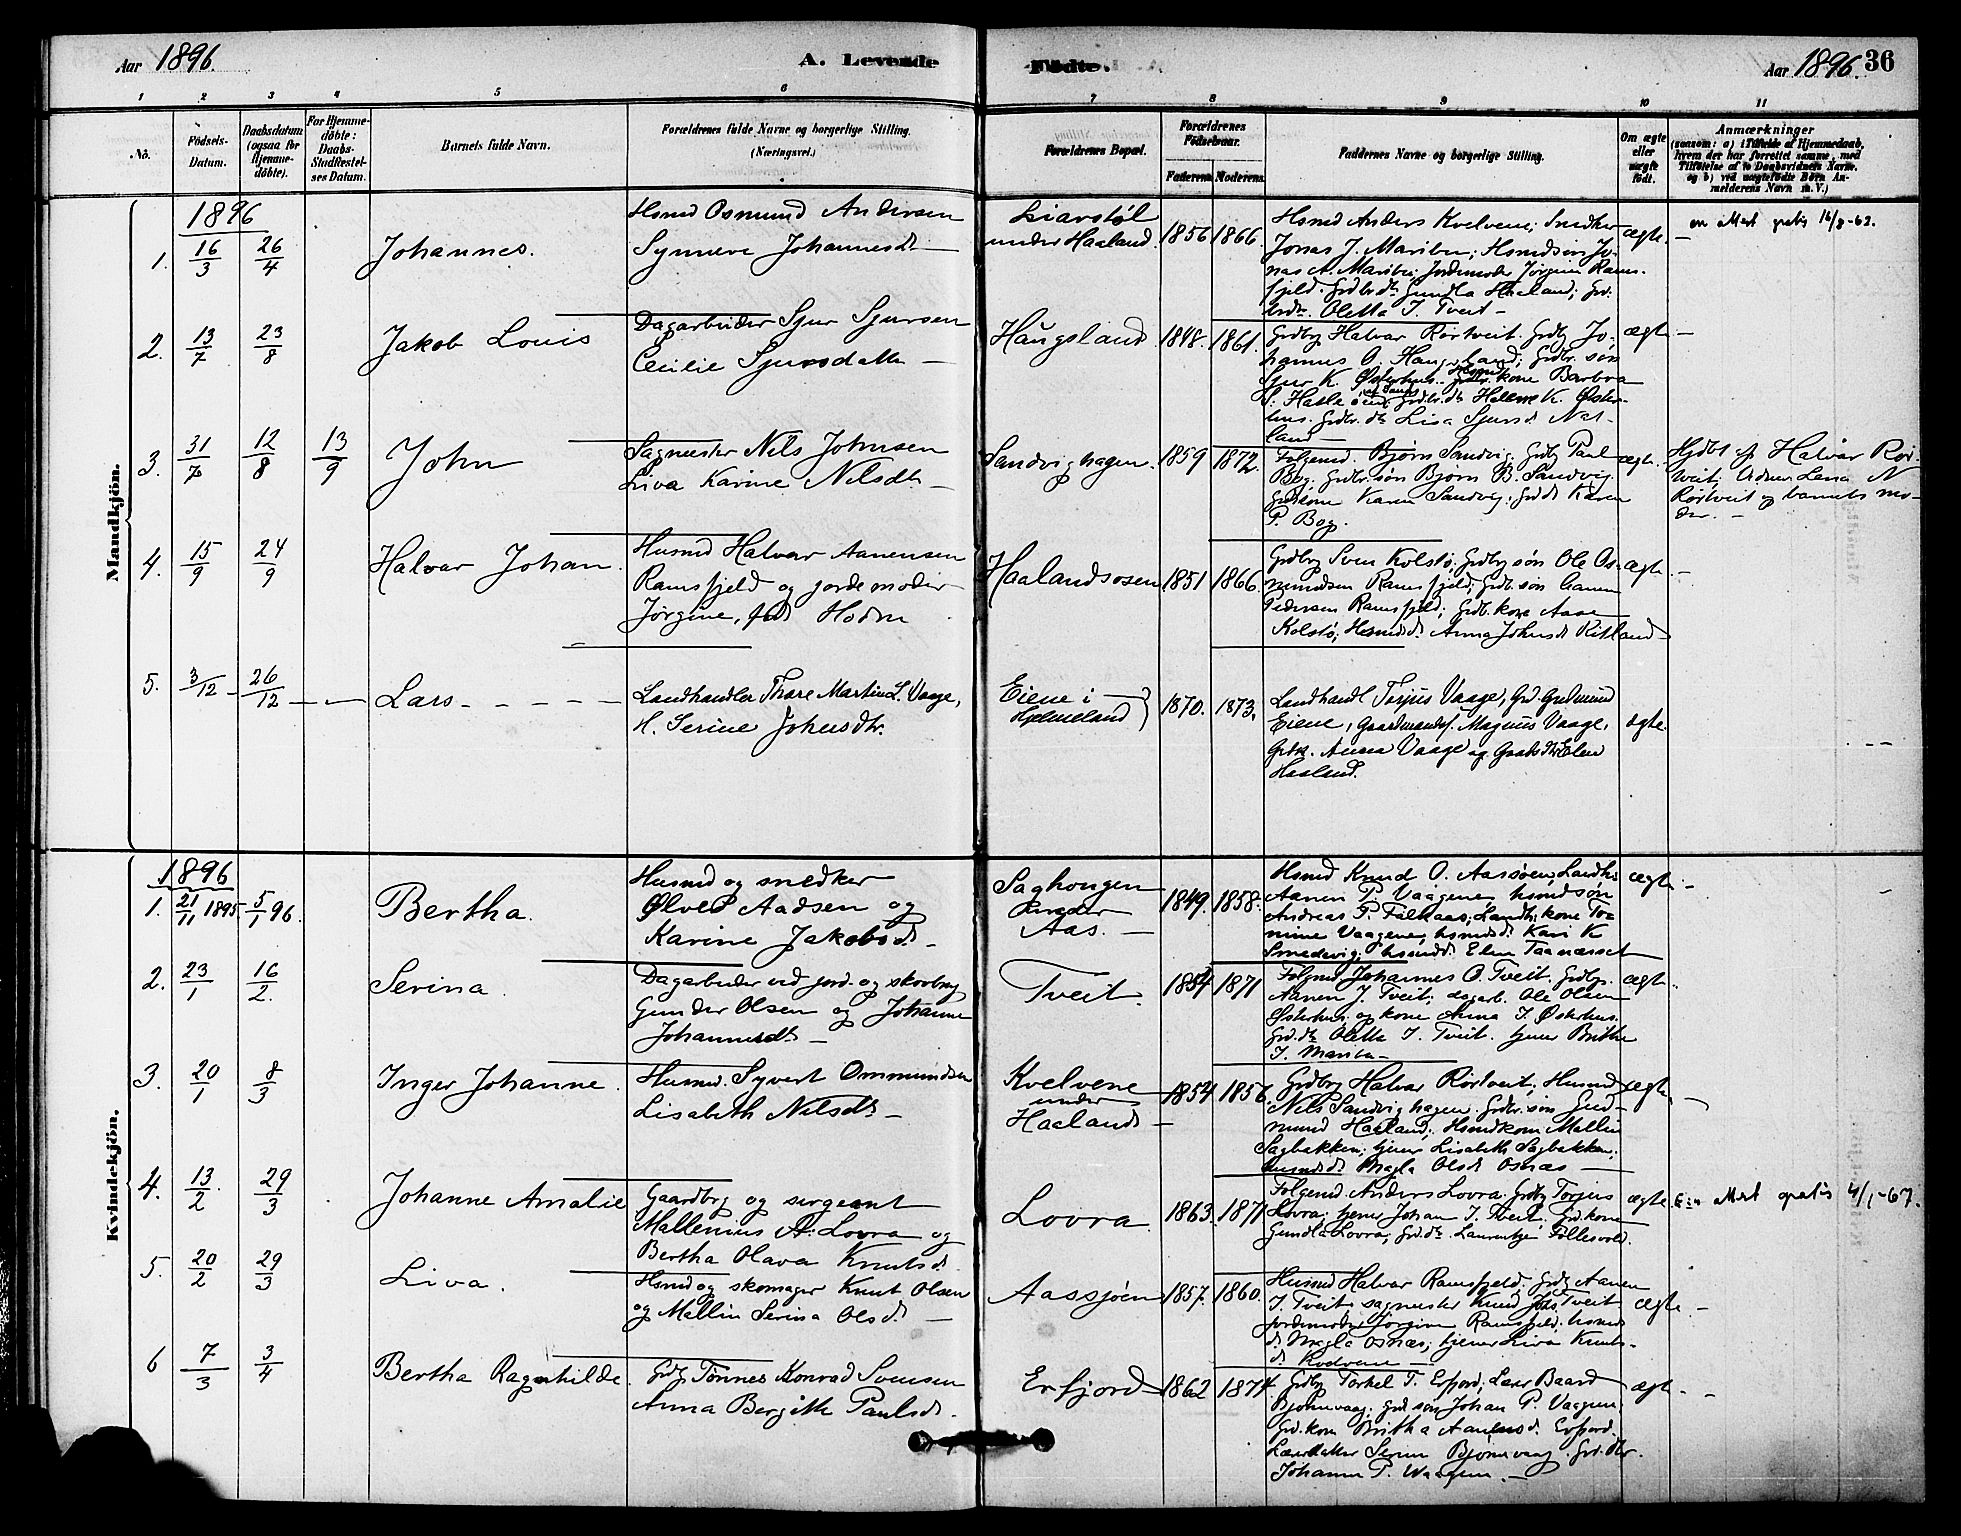 Aar 1896.
A. Levende
Fødte.
Aar 1896.
36
1 2 3 4 5 6 7 8 9 10 11
No.
Fødsels-
Datum.
Daabsdatum
(ogsaa for
Hjemme-
døbte).
For Hjemme-
døbte:
Daabs-
Stadfæstel-
ses Datum.
Barnets fulde Navn.
Forældrenes fulde Navne og borgerlige Stilling.
(Næringsvei.)
Forældrenes Bopæl.
Forældrenes
Fødselsaar.
Faderens. Moderens.
Faddernes Navne og borgerlige Stilling.
Om ægte
eller
uægte
født.
Anmærkninger
(saasom: a) i Tilfælde af Hjemmedaab,
hvem der har forrettet samme, med
Tilføielse af to Daabsvidners Navne.
og b) ved uægtefødte Børn An-
melderens Navn m. V.)
Mandkjön.
1896
1. 16/3 26/4 Johannes.
Hsmd Osmund Andersen
Synneve Johannesdt
Liarstøl
under Haaland.
1856 1866.
Hsmd Anders Kvelvene; Snedker
Jonas J. Mariber; Hsmdsøn Jo-
nas A. Mariber; Jordemoder Jørgine Rams-
fjeld. Grdbr. dt. Gundla Haaland; Grd.
brdt. Oletta J. Tveit
ægte.
en attest gratis 16/8-62.
2. 13/7 23/8 Jakob Louis
Dagarbeider Sjur Sjursen
Cecilie Sjursdatter
Haugsland
1848. 1861.
Grdbrg Halvar Rørtveit. Grdb Jo-
hannes O. Haugsland; Grdbr. søn
Sjur K. Østerhus. kone Barbra
Østerhus. Grdbr. dt. Lisa Sjursd. Nat-
land
ægte
3. 31/7 12/8 13/9 John
Sagmester Nils Johnsen
Liva Karine Nilsdt
Sandvighagen.
1859 1872.
Folgemd. Bjørn Sandvig. Grdb Paul
Bog. Grdbr. søn Bjørn B. Sandvig.
Grdkone Karen Sandvig; Grd dt Karen
P. Bog.
ægte.
Hjdbt af Halvar Rør-
tveit; Vidner Lena N
Rørtveit og barnets mo-
der.
4. 15/9 24/9 Halvar Johan.
Husmd Halvar Aanensen
Ramsfjeld og jordemoder
Jørgine, fød Hodne
Haalandsosen
1851 1866.
Grdbrg Sven Kolstø, Grdbrg søn Ole Os-
mundsen Ramsfjeld; Grdb. søn
Pedersen Ramsfjeld; Grdb. kone Aase
Kolstø; Hsmds d. Anna Johnsd Ritland
ægte
5. 3/12 26/12 Lars
Landhandler Thore Martin L. Vaage,
H. Serine Johnsdtr.
Eiene i
Hjelmeland
1870. 1873.
Landhandl Torjus Vaage, Grd. Gudmund
Eiene, Gaardmands s. Magnus Vaage,
Grdk. Anna Vaage og Gaards dtr Elen
Haaland.
ægte.
Kvindekjön.
1896
1. 21/11 1895. 5/1 96. Bertha.
Husmd og snedker
Ølver Aadsen og
Karine Jakobsd.
Saghougen
under
Aas.
1849. 1858.
Hsmd Knud O. Aassøen, Landh:
Aanen P. Vaagene, hsmdsøn
Andreas P. Falkaas; Landh: kone To-
mine Vaagene, hsmds d. Kari K
Smedevig; hsmds d. Elen Taanæsset
ægte
2. 23/1 16/2. Serina.
Dagarbeider ved jord- og skovbrug
Gunder Olsen og Johanne
Johannesdt
Tveit.
1854 1871
Folgmd. Johannes O. Tveit. Grdbr.
Aanen J. Tveit; dagarb. Ole Olsen
Østerhus og kone Anna I. Østerhus.
Grd. dt Oletta J. Tveit. tjener Brithe
J. Mariber
ægte.
3. 20/1 8/3 Inger Johanne.
Husmd. Syvert Ommundsen
Lisabeth Nilsdt
Kvelvene
under
Haaland
1854 1856.
Grdbrg Halvar Rørtveit; Husmd
Nils Sandvighagen. Grdbr. søn Gud-
mund Haaland; Hsmdkone Mallin
Sagbakken; tjener Lisabeth Sagbakken;
husmds d. Magla Olsd Osnæs
ægte.
4. 13/2 29/3 Johanne Amalie
Gaardbrg og sergeant
Mallenius A. Lovra og
Bertha Olava Knutsd.
Lovra
1863. 1871
Folgemd. Anders Lovra. Grdbrg Torjus
Lovra; tjener Johan J. Tveit. Grd. kone
Gundla Lovra; Grd. dt. Laurentze Follesvold.
ægte.
Een attest gratis 4/1-67.
5. 20/2 29/3 Liva.
Hsmd og skomager Knut Olsen
og Mallin Serina Olsd.
Aassjøen
1857. 1860.
Husmd Halvar Ramsfjeld. Grdbrg Aanen
J. Tveit sagmester Knud Tveit
jordemoder Jørgine Ramsfjeld. husmds
d. Magla Osnæs; tjener Liva Knuts-
d. Kvelvene
ægte
6 7/3 3/4 Bertha Ragnhilde.
Grdbrg Tønnes Konrad Svensen
Anna Bergitte Paulsd.
Erfjord
1862 1874.
Grdbrg Torkel T. Erfjord, Lærer Baard
Bjørnevaag. Grd søn Johan P. Vaagene.
Grd. kone Britha Aanensd. Erfjord.
Lærerdatter Seren Bjørnevaag. Grd. dtr.
Johanne P. Waagene.
ægte.